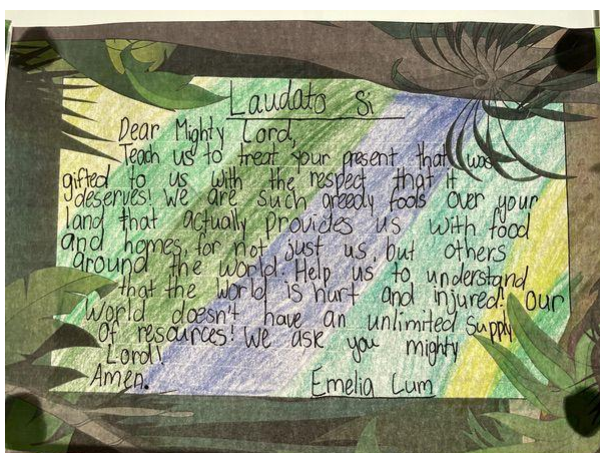 Laudato Si
Dear Mighty Lord,
Teach us to treat your present that was
gifted to us with the respect that it
deserves! We are such greedy fools over your
land that actually provides us with food
and homes, for not just us, but others
around the world. Help us to understand
that the world is hurt and injured! Our
world doesn't have an unlimited supply
of resources! We ask you mighty
Lord!
Amen.
Emelia Lum